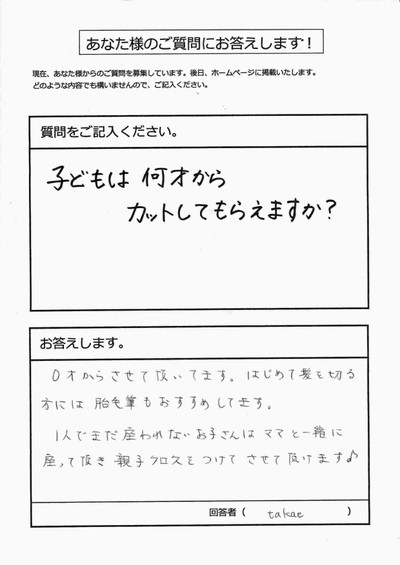 あなた様のご質問にお答えします！
現在、あなた様からのご質問を募集しています。後日、ホームページに掲載いたします。
どのような内容でも構いませんので、ご記入ください。
質問をご記入ください。
子どもは 何才から
カットしてもらえますか？
お答えします。
0才からさせて頂いてます。はじめて髪を切る
方には 胎毛筆もおすすめしてます。
1人でまだ座われないお子さんはママと一緒に
座って頂き 親子クロスをつけて させて頂けます♪
回答者（ takae ）